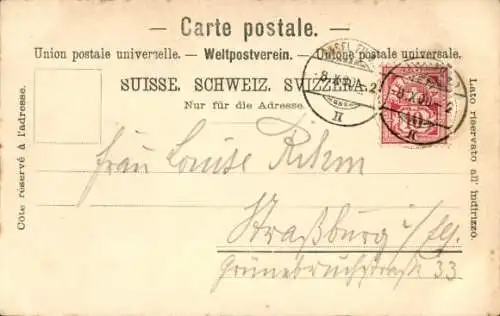 Carte postale.
Union postale universelle. — Weltpostverein. — Unione postale universale.
SUISSE. SCHWEIZ. SVIZZERA.
Nur für die Adresse.
Côte réservé à l'adresse.
Lato riservato all' indirizzo.
Frau Louise Rehm
Straßburg i/Els.
Grünebruchstraße 33